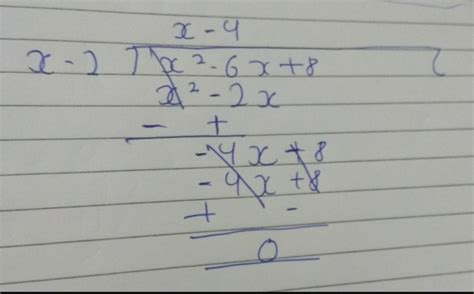 x - 4
x - 2 ) x² - 6x + 8 (
x² - 2x
- +
- 4x + 8
- 4x + 8
+ -
0